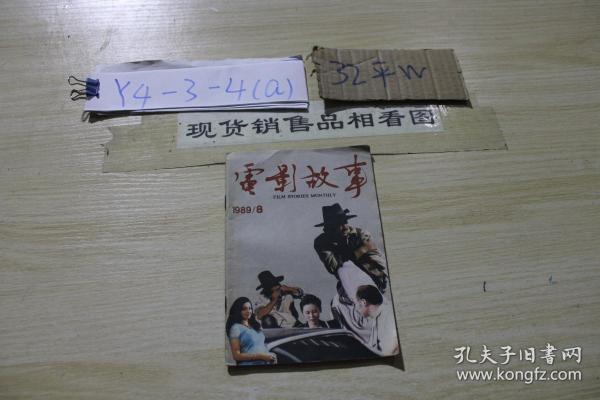 Y4-3-4(a)
32平W
现货销售品相看图
電影故事
FILM STORIES MONTHLY
1989/8
孔夫子旧书网
www.kongfz.com